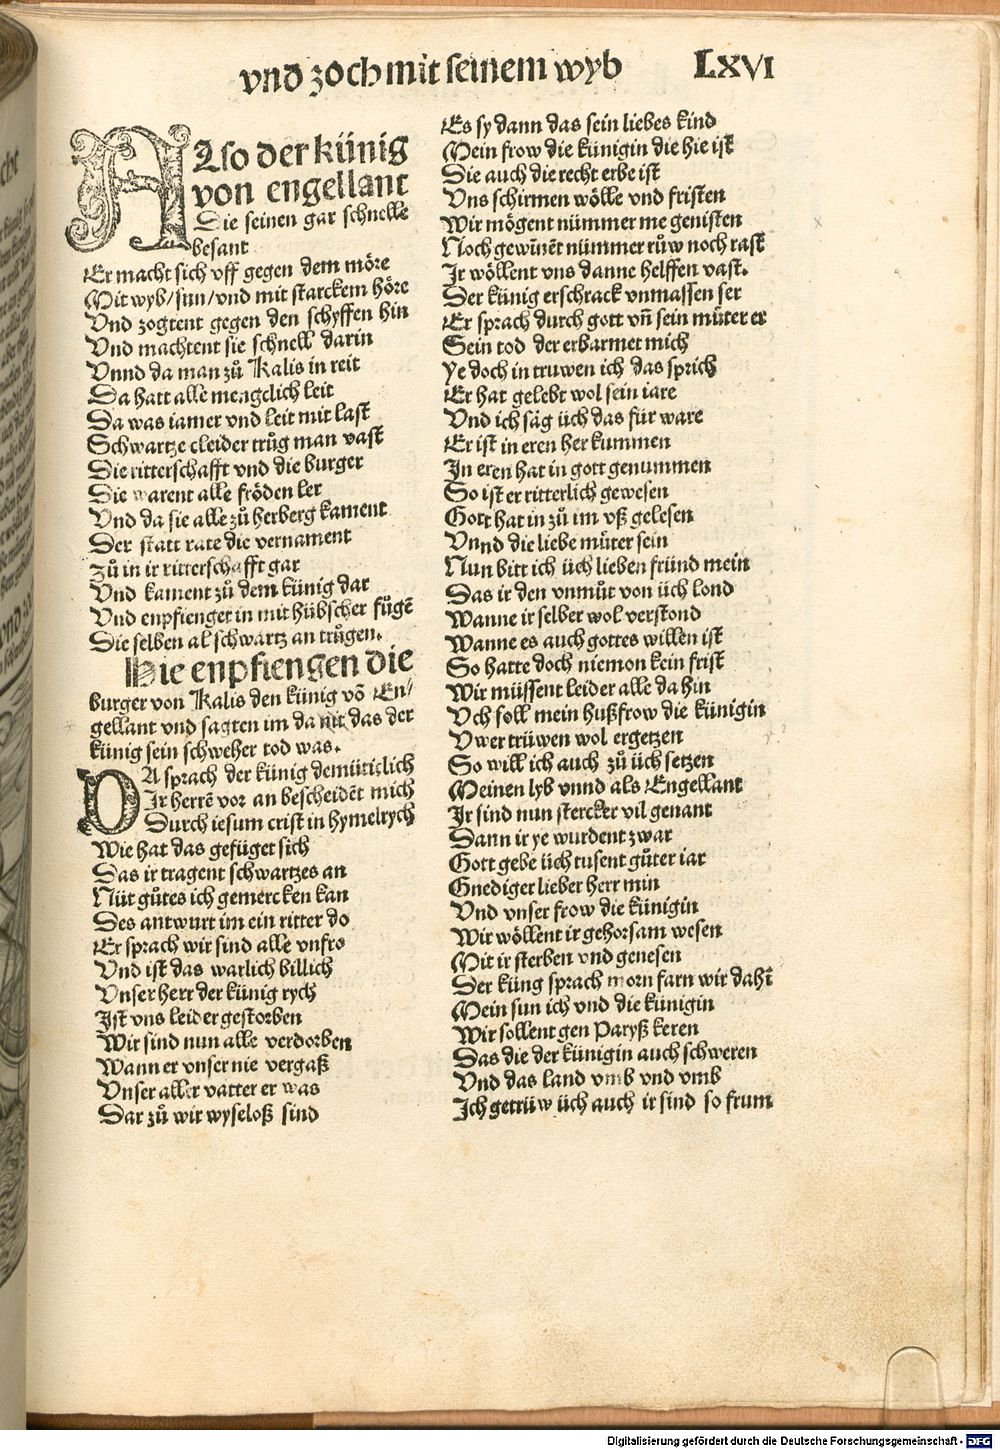 vnd zoch mit seinem wyb LXVI
Also der künig
von engellant
Die seinen gar schnelle
besant
Er macht sich vff gegen dem möre
Mit wyb/sun/vnd mit starckem höre
Vnd zogtent gegen den schyffen hin
Vnd machtent sie schnell darin
Vnnd da man zů Kalis in reit
Da hatt alle mengclich leit
Da was iamer vnd leit mit last
Schwartze cleider trůg man vast
Die ritterschafft vnd die burger
Die warent alle fröden ler
Vnd da sie alle zů herberg kament
Der statt rate die vernament
Zů in ir ritterschafft gar
Vnd kament zů dem künig dar
Vnd enpfienget in mit hübscher fůgẽ
Die selben al schwartz an trůgen.
Hie enpfiengen die
burger von Kalis den künig võ En/
gellant vnd sagten im da mit das der
künig sein schweher tod was.
DA sprach der künig demüticlich
Ir herrẽ vor an bescheidẽt mich
Durch iesum crist in hymelrych
Wie hat das gefüget sich
Das ir tragent schwartzes an
Nüt gůtes ich gemercken kan
Des antwurt im ein ritter do
Er sprach wir sind alle vnfro
Vnd ist das warlich billich
Vnser herr der künig rych
Ist vns leider gestorben
Wir sind nun alle verdorben
Wann er vnser nie vergaß
Vnser aller vatter er was
Dar zů wir wyseloß sind
Es sy dann das sein liebes kind
Mein frow die künigin die hie ist
Die auch die recht erbe ist
Vns schirmen wölle vnd fristen
Wir mögent nümmer me genisten
Noch gewiñẽt nümmer růw noch rast
Ir wöllent vns danne helffen vast.
Der künig erschrack vnmassen ser
Er sprach durch gott vñ sein můter er
Sein tod der erbarmet mich
Ye doch in truwen ich das sprich
Er hat gelebt wol sein iare
Vnd ich säg üch das für ware
Er ist in eren her kummen
In eren hat in gott genummen
So ist er ritterlich gewesen
Gott hat in zů im vß gelesen
Vnnd die liebe můter sein
Nun bitt ich üch lieben fründ mein
Das ir den vnmůt von üch lond
Wanne ir selber wol verstond
Wanne es auch gottes willen ist
So hatte doch niemon kein frist
Wir müssent leider alle da hin
Vch soll mein hußfrow die künigin
Vwer trüwen wol ergetzen
So will ich auch zů üch setzen
Meinen lyb vnnd als Engellant
Ir sind nun stercker vil genant
Dann ir ye wurdent zwar
Gott gebe üch tusent gůter iar
Gnediger lieber herr min
Vnd vnser frow die künigin
Wir wöllent ir gehorsam wesen
Mit ir sterben vnd genesen
Der küng sprach morn farn wir dahĩ
Mein sun ich vnd die künigin
Wir sollent gen Paryß keren
Das die der künigin auch schweren
Vnd das land vmb vnd vmb
Ich getrüw üch auch ir sind so frum
Digitalisierung gefördert durch die Deutsche Forschungsgemeinschaft - DFG